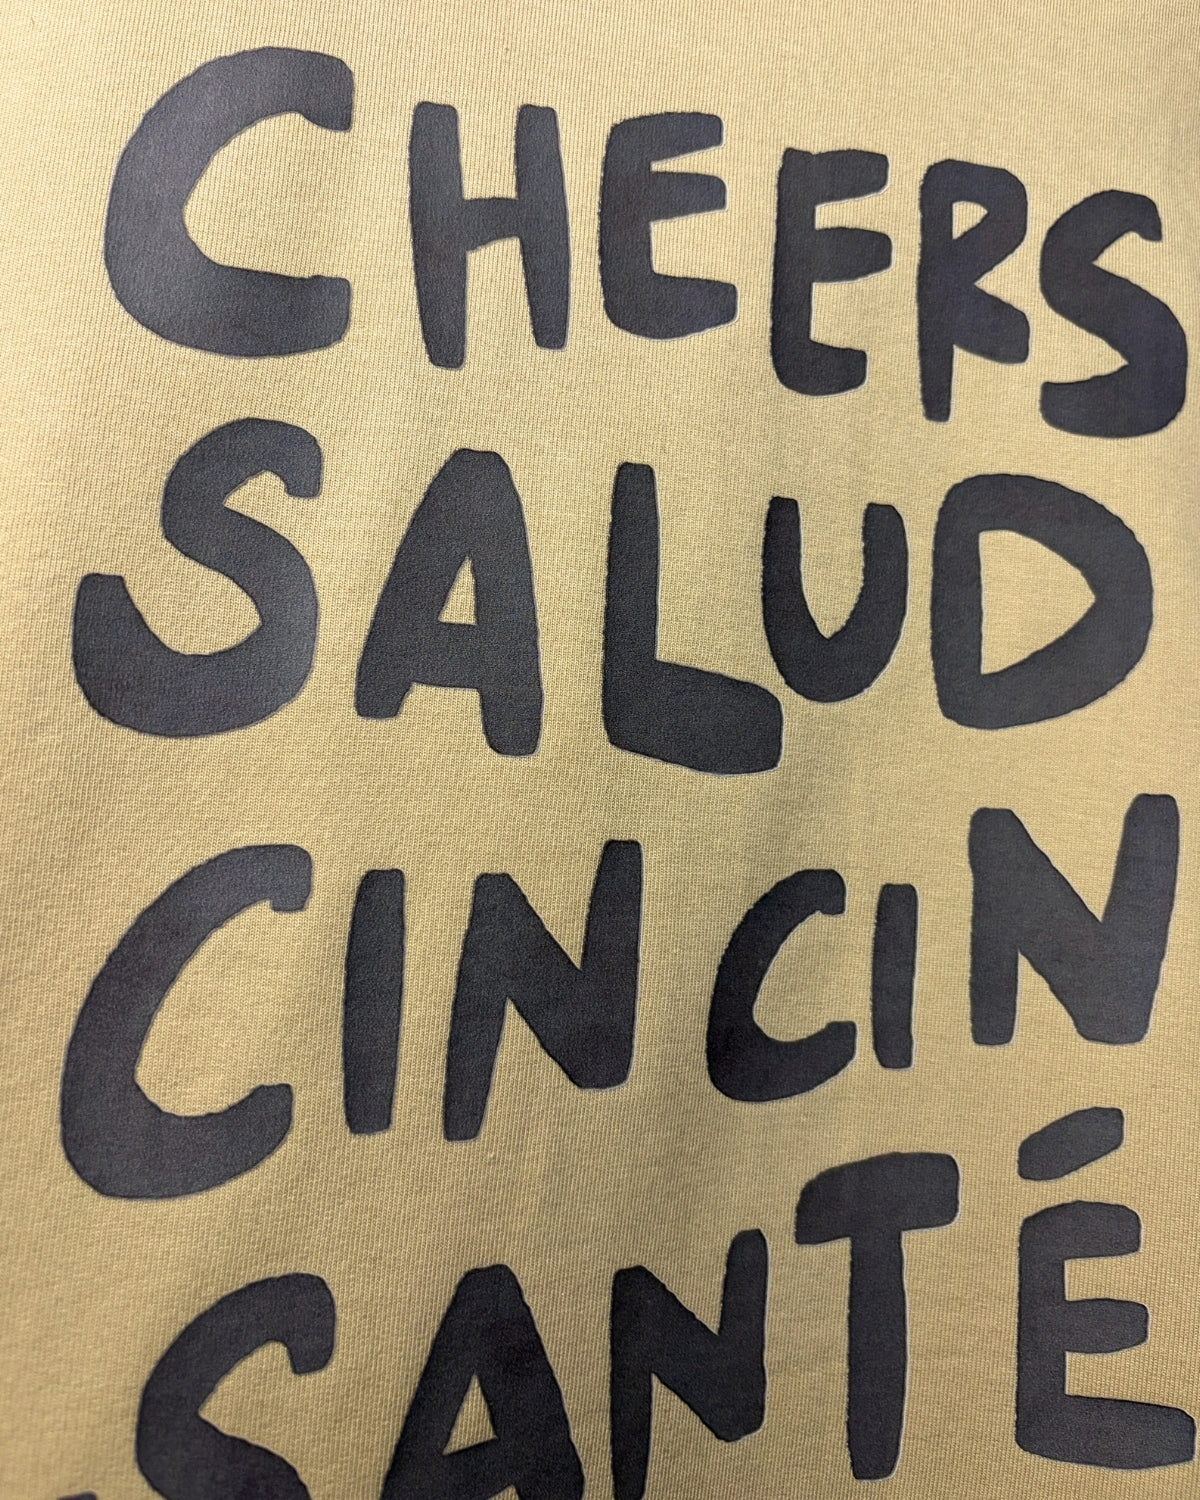 CHEERS
SALUD
CINCIN
SANTÉ